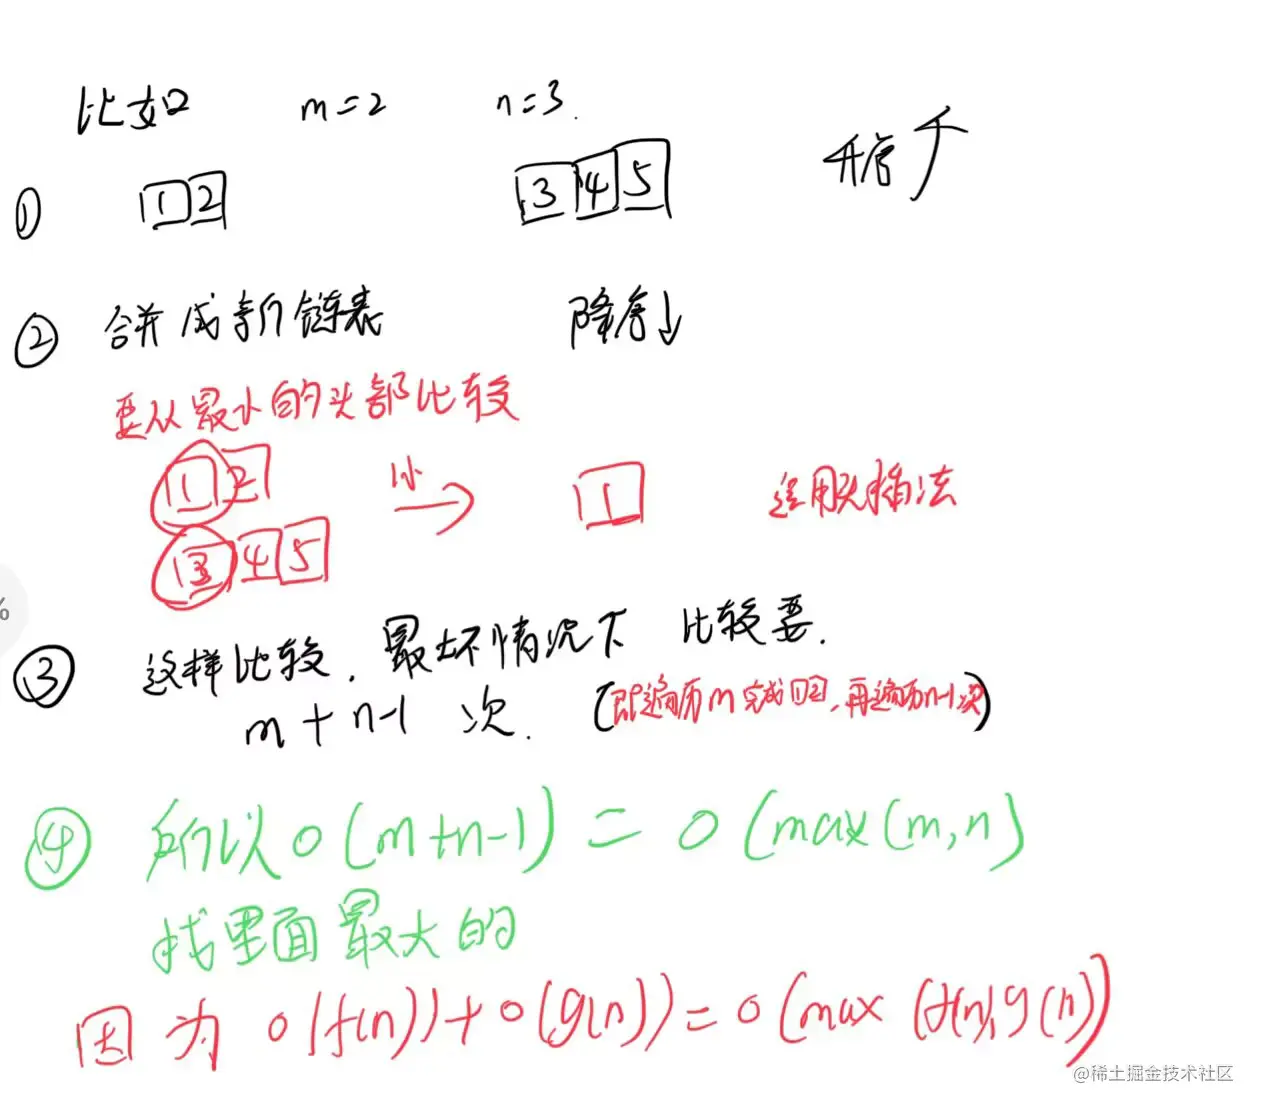 比如 m=2 n=3.
① 1 2 3 4 5 升序↑
② 合并成新链表 降序↓
要从最小的头部比较
1 2 小 → 1 运用头插法
3 4 5
③ 这样比较, 最坏情况下 比较要.
m+n-1 次. (即遍历m完成12,再遍历n-1次)
④ 所以 O(m+n-1) = O(max(m,n)
找里面最大的
因为 O(f(n))+O(g(n))=O(max(f(n),g(n))
@稀土掘金技术社区